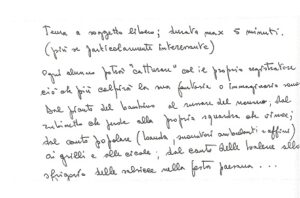 Tema a soggetto libero; durata max 5 minuti.
(più se particolarmente interessante)
Ogni alunno potrà "catturare" col il proprio registratore
ciò che più colpirà la sua fantasia o immaginario sonoro
Dal pianto del bambino al rumore del nonno, dal
rubinetto che perde alla propria squadra che vince;
dal canto popolare (banda, suonatori ambulanti e affini)
ai grilli e alle cicale; dal canto delle balene allo
sfrigolio delle salsicce nella festa paesana ...